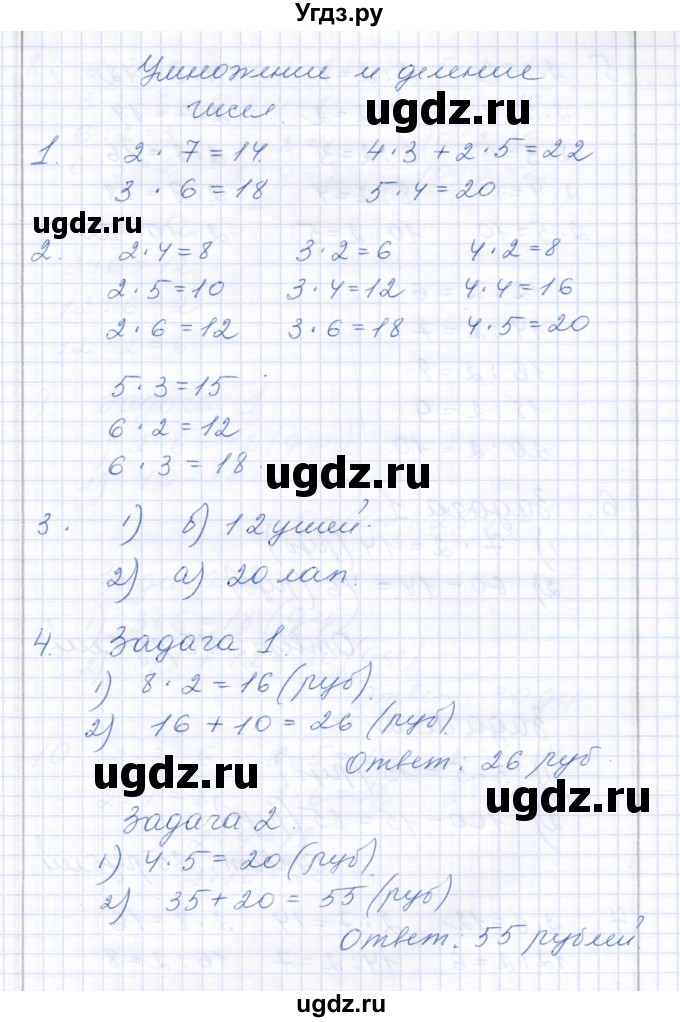 Угдз.ру
Умножение и деление
чисел.
ugdz.ru
1. 2 · 7 = 14. 4 · 3 + 2 · 5 = 22
3 · 6 = 18 5 · 4 = 20
ugdz.ru
2. 2 · 4 = 8 3 · 2 = 6 4 · 2 = 8
2 · 5 = 10 3 · 4 = 12 4 · 4 = 16
2 · 6 = 12 3 · 6 = 18 4 · 5 = 20
5 · 3 = 15
6 · 2 = 12
6 · 3 = 18
ugdz.ru
3. 1) б) 12 ушей.
2) а) 20 лап.
4. Задача 1.
1) 8 · 2 = 16 (руб).
2) 16 + 10 = 26 (руб).
Ответ: 26 руб
ugdz.ru
ugdz.ru
Задача 2.
1) 4 · 5 = 20 (руб).
2) 35 + 20 = 55 (руб)
Ответ: 55 рублей.
ugdz.ru